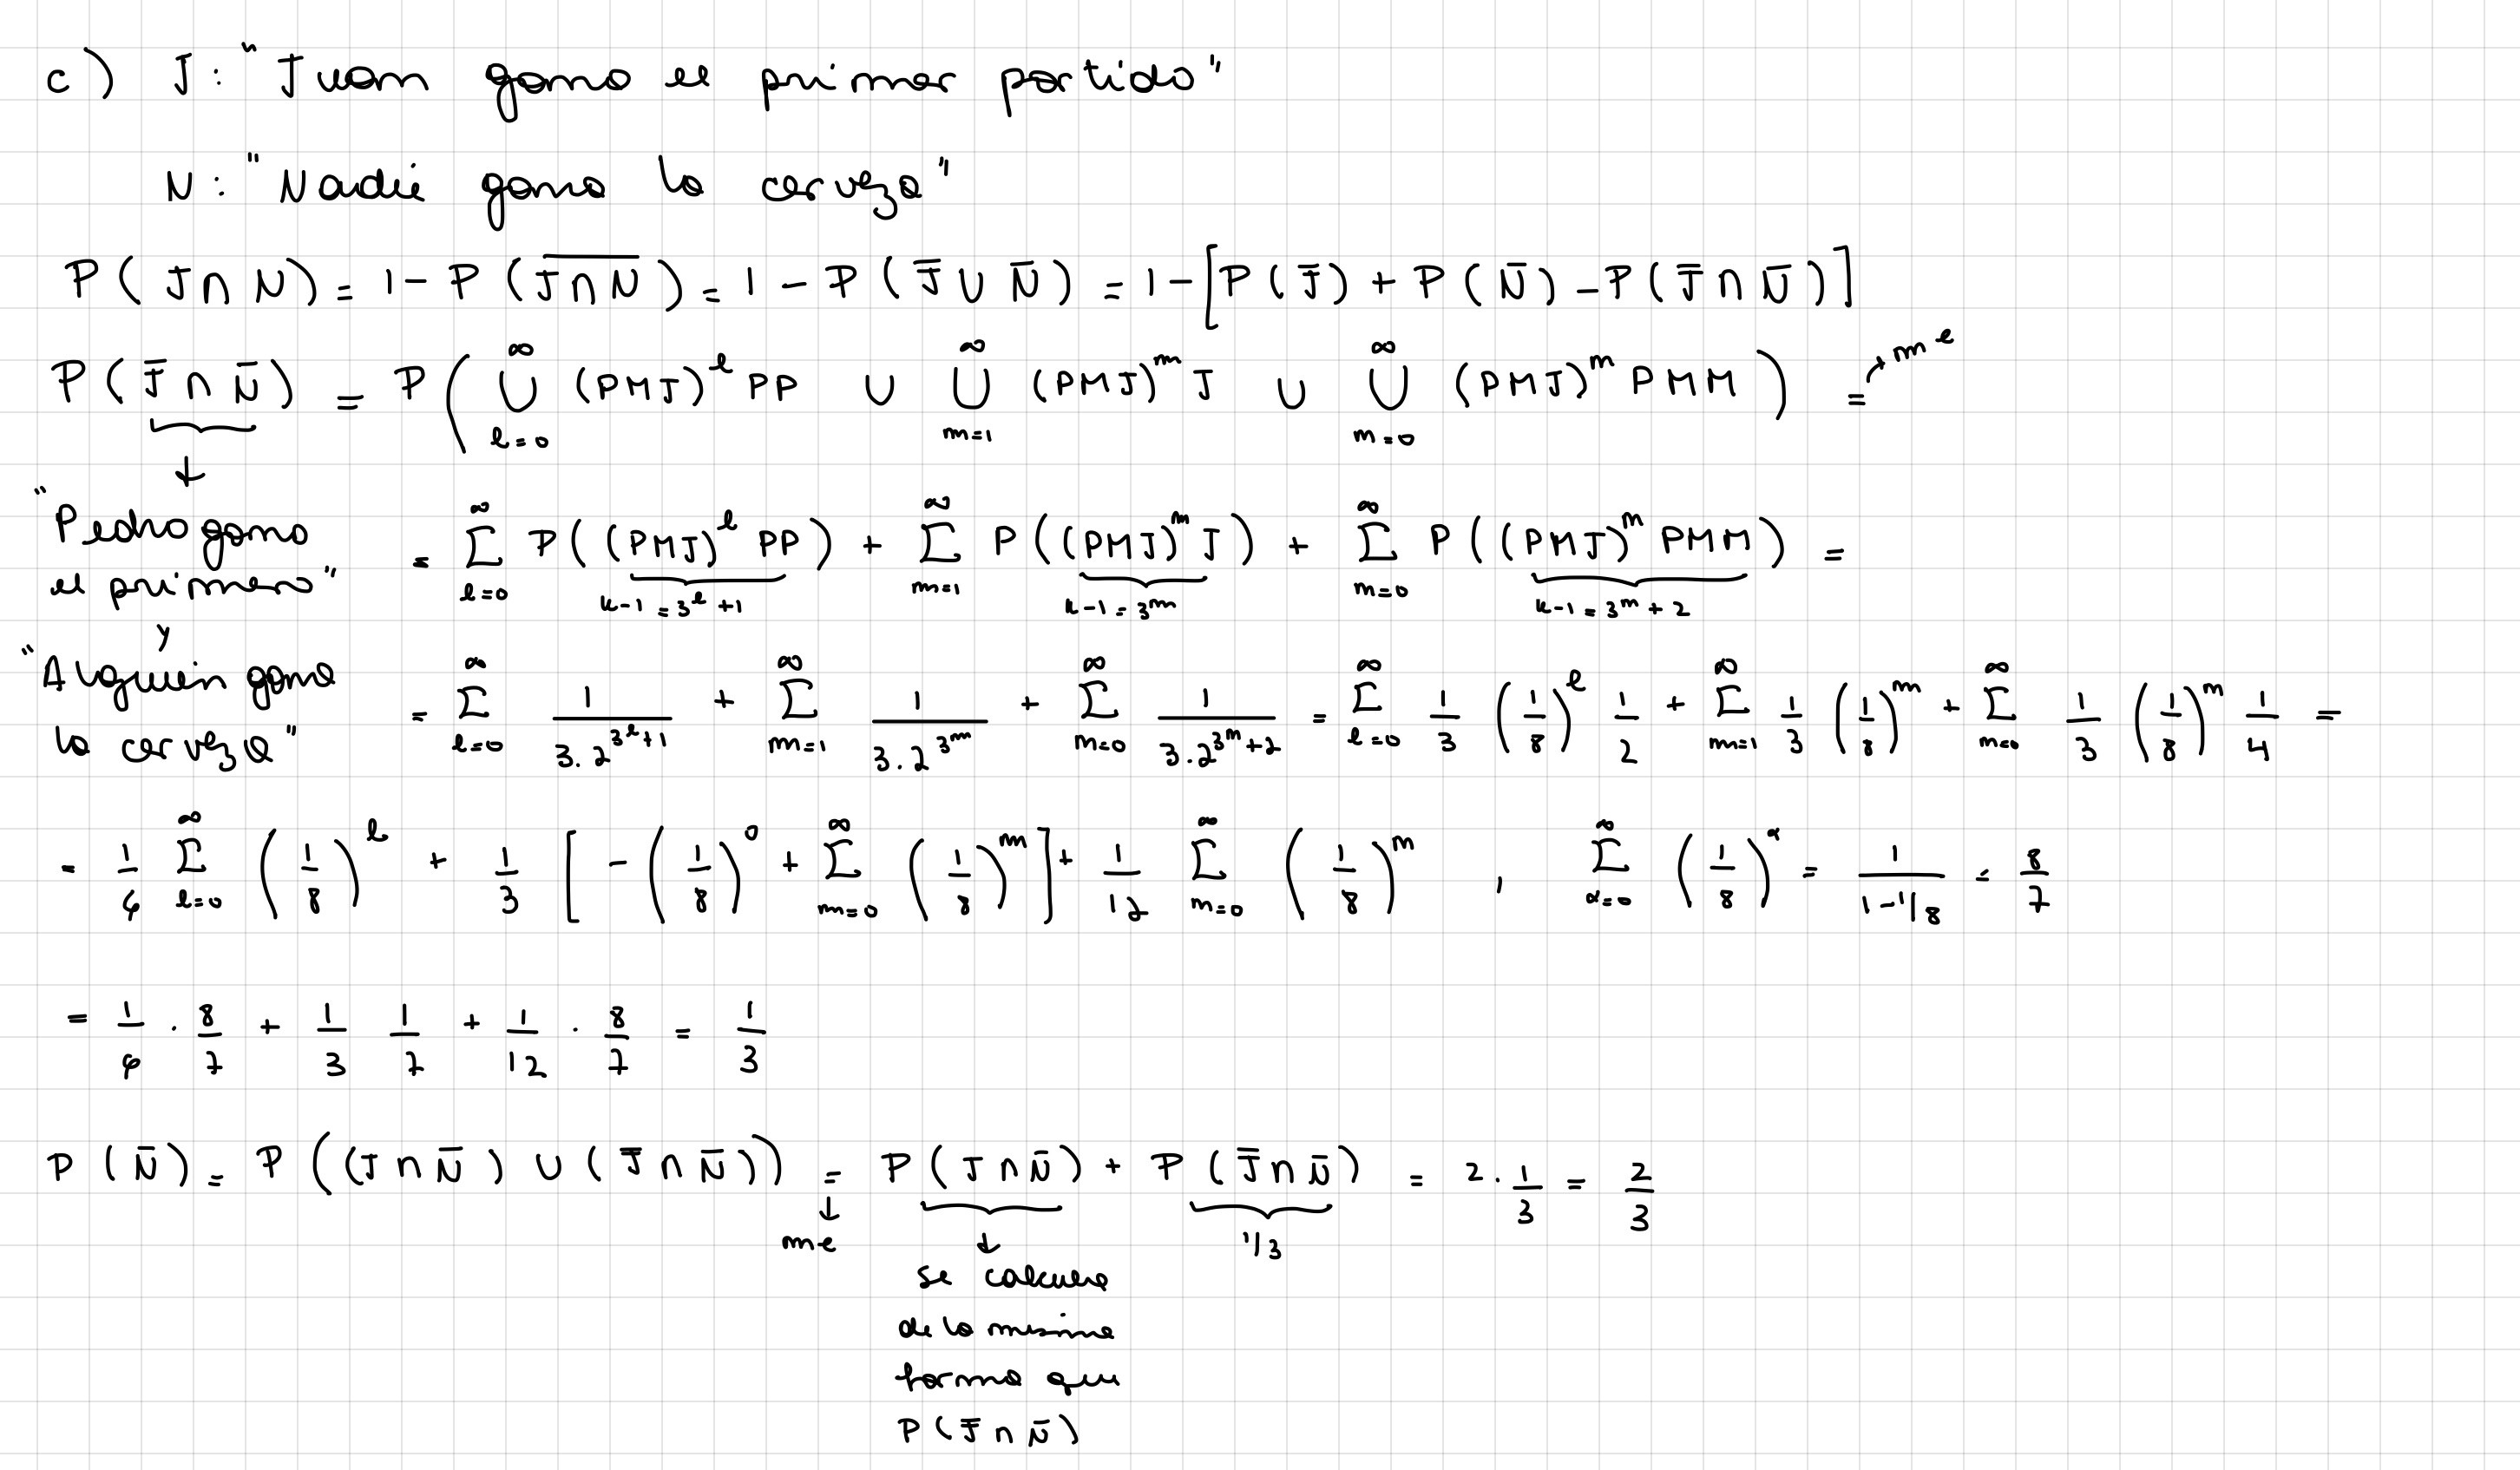 c) J: "Juan gana el primer partido"
N: "Nadie gana la cerveza"
P(J∩N) = 1 - P(\overline{J∩N}) = 1 - P(J̄ ∪ N̄) = 1 - [P(J̄) + P(N̄) - P(J̄∩N̄)]
P(J̄∩N̄) = P( ⋃_{l=0}^{∞} (PMJ)^l PP ∪ ⋃_{m=1}^{∞} (PMJ)^m J ∪ ⋃_{m=0}^{∞} (PMJ)^m PMM ) = → m e
↓
"Pedro gana el primero" y "Alguien gana la cerveza"
= ∑_{l=0}^{∞} P((PMJ)^l PP) + ∑_{m=1}^{∞} P((PMJ)^m J) + ∑_{m=0}^{∞} P((PMJ)^m PMM) =
k-1 = 3^l + 1   k-1 = 3^m   k-1 = 3^m + 2
= ∑_{l=0}^{∞} 1/(3.2^{3^l+1}) + ∑_{m=1}^{∞} 1/(3.2^{3^m}) + ∑_{m=0}^{∞} 1/(3.2^{3^m+2}) = ∑_{l=0}^{∞} 1/3 (1/8)^l 1/2 + ∑_{m=1}^{∞} 1/3 (1/8)^m + ∑_{m=0}^{∞} 1/3 (1/8)^m 1/4 =
= 1/6 ∑_{l=0}^{∞} (1/8)^l + 1/3 [ -(1/8)^0 + ∑_{m=0}^{∞} (1/8)^m ] + 1/12 ∑_{m=0}^{∞} (1/8)^m , ∑_{α=0}^{∞} (1/8)^α = 1/(1-1/8) = 8/7
= 1/6 · 8/7 + 1/3 1/7 + 1/12 · 8/7 = 1/3
P(N̄) = P((J∩N̄) ∪ (J̄∩N̄)) = P(J∩N̄) + P(J̄∩N̄) = 2 · 1/3 = 2/3
↓ m e   ↓   1/3
se calcula
de la misma
forma que
P(J̄∩N̄)